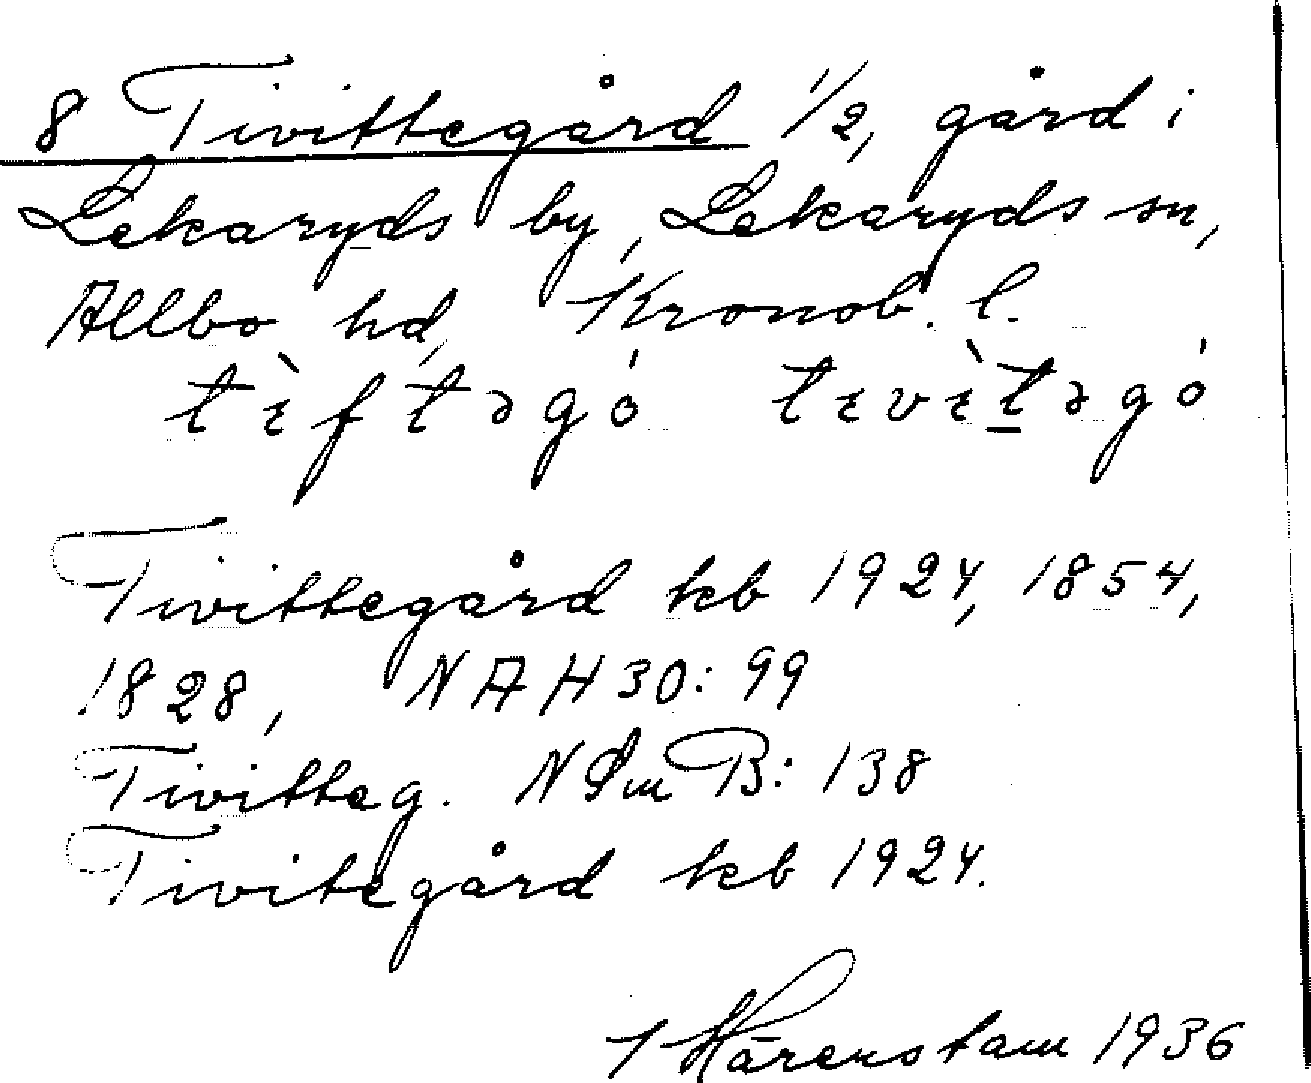 8 Tivittegård 1/2, gård i
Lekaryds by, Lekaryds sn,
Allbo hd, Kronob. l.
tìftəgó tɩvìtəgó
Tivittegård kb 1924, 1854,
1828, NAH30: 99
Tivitteg. NSmB: 138
Tivitegård kb 1924.
Härenstam 1936